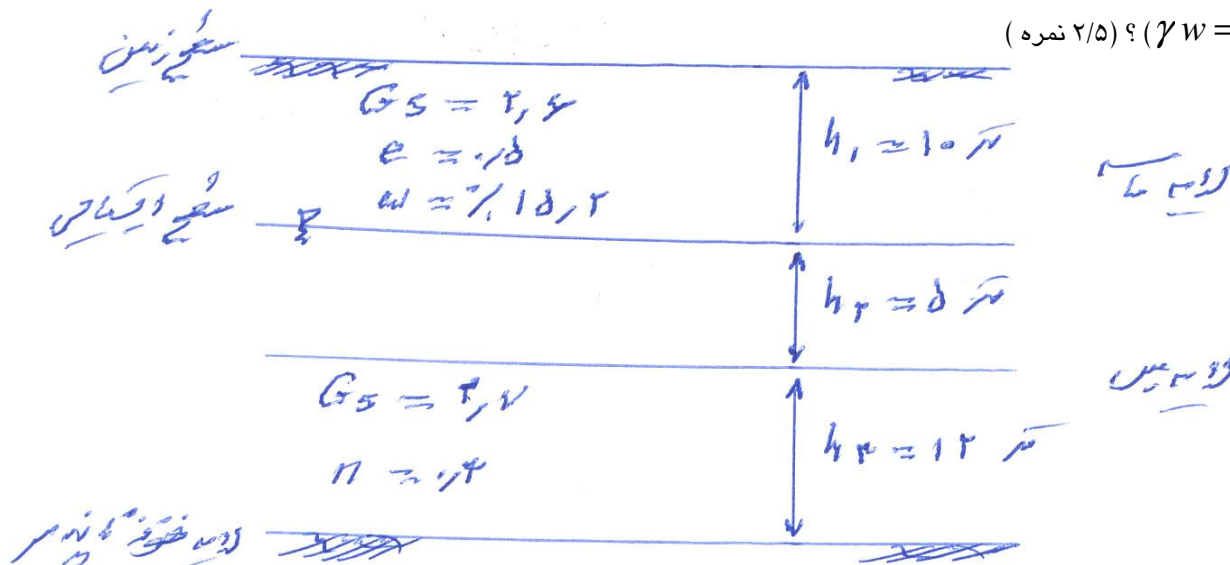 (γ w = ؟ (۲/۵ نمره )
سطح زمین
Gs = ۲,۶
e = ۰,۵
ω = ٪۱۵,۲
h۱ = ۱۰ متر
لایه ماسه
سطح ایستابی
h۲ = ۵ متر
لایه رس
Gs = ۲,۷
n = ۰,۴
h۳ = ۱۲ متر
لایه نفوذ ناپذیر